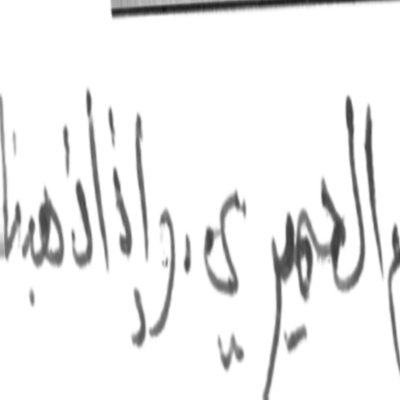 الحميري . واذا ذهبنا